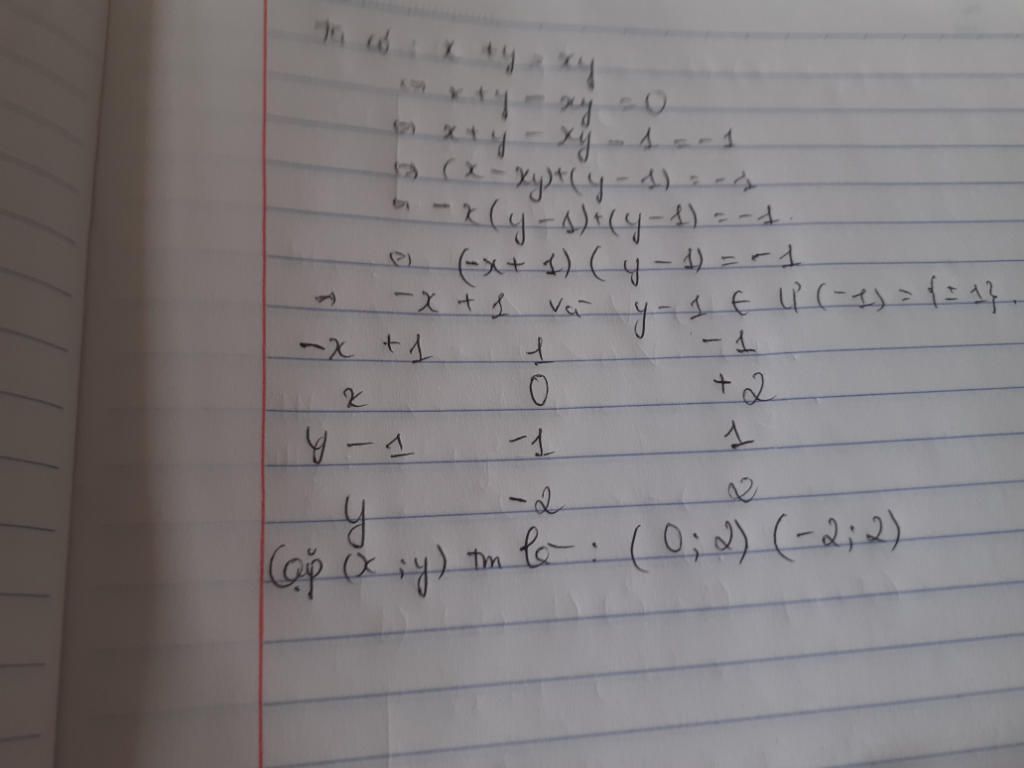 Ta có : x + y = xy
⇔ x + y - xy = 0
⇔ x + y - xy - 1 = -1
⇔ (x - xy) + (y - 1) = -1
⇔ -x(y - 1) + (y - 1) = -1.
⇔ (-x + 1)(y - 1) = -1
⇒ -x + 1 và y - 1 ∈ Ư(-1) = {±1}.
-x + 1 1 -1
x 0 +2
y - 1 -1 1
y -2 2
Cặp (x ; y) tm là : (0; 2) (-2; 2)